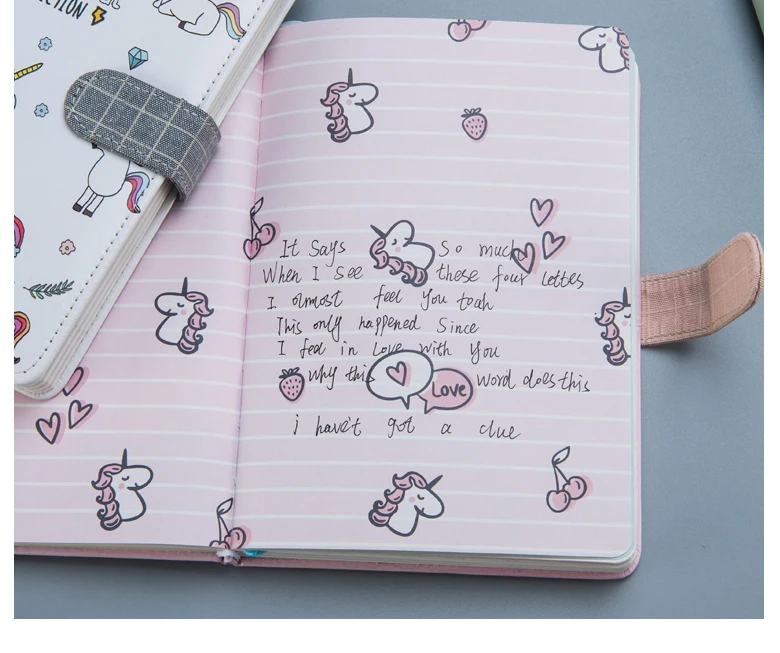 CTION
It Says So much
When I see these four Lettes
I olmost feel You toah
This only happened Since
I feel in Love with You
why this Love word does this
i havet got a clue